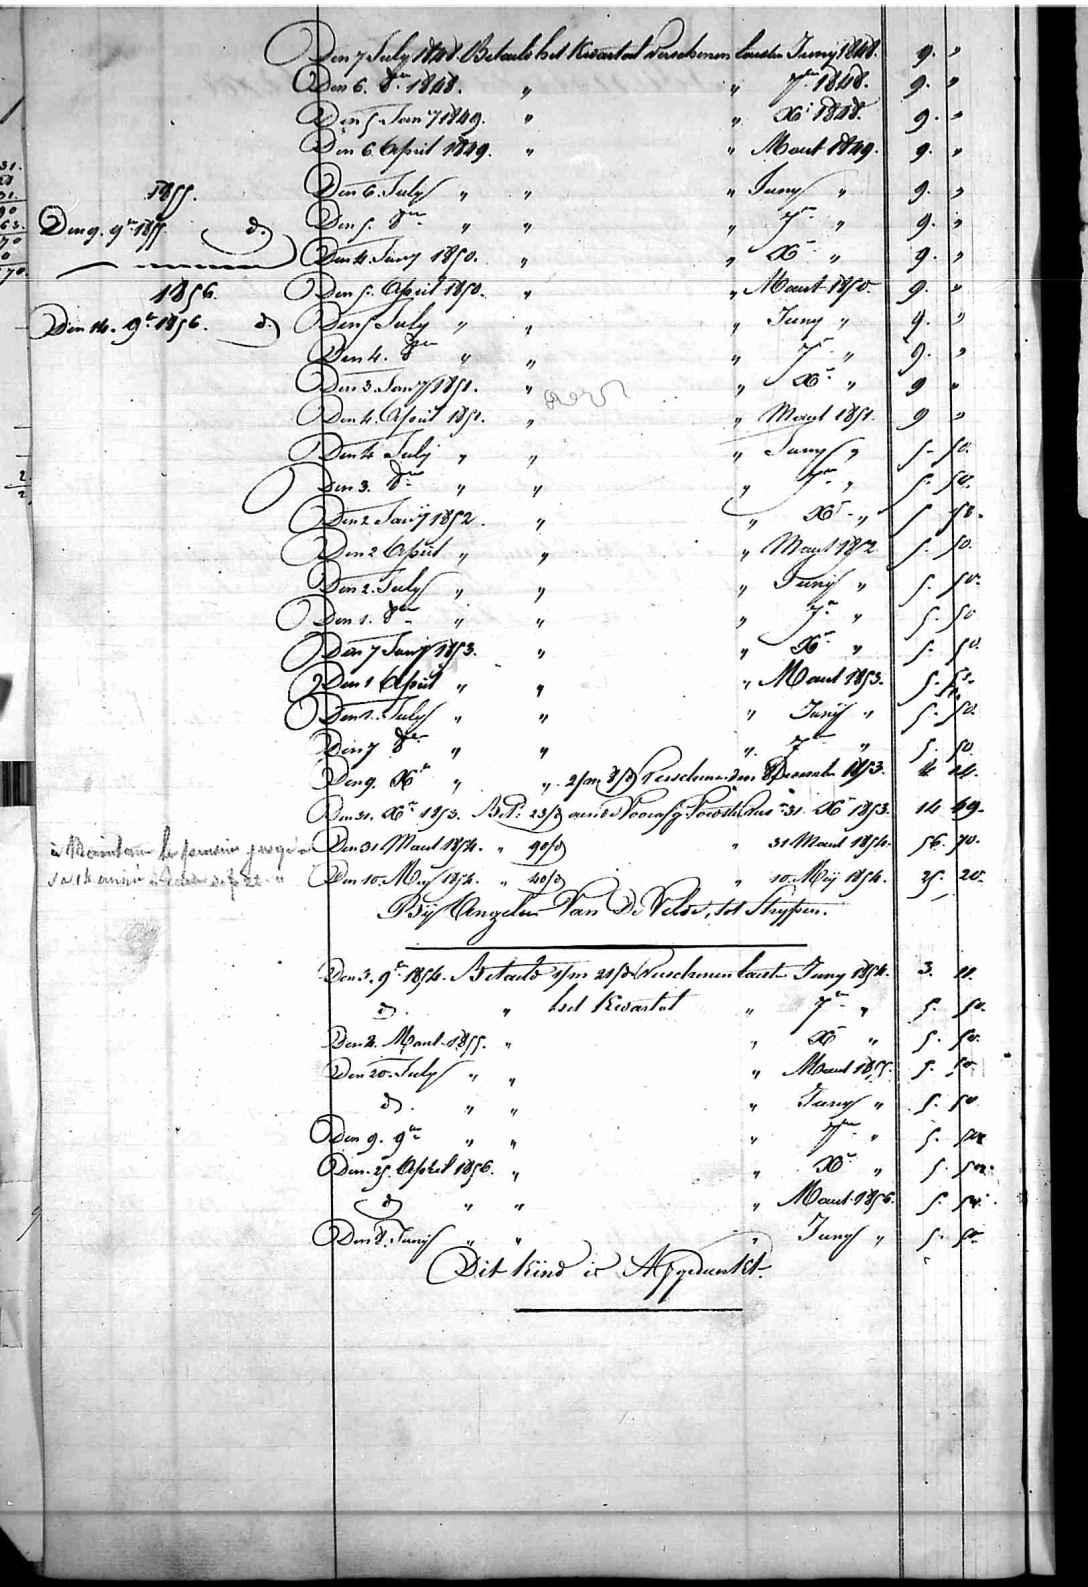 Den 7 July 1848. Betaald het Kwartaal verschenen laasten Junij 1848. 9. "
Den 6. 8er 1848. " " 7er 1848. 9. "
Den 5 Jan'y 1849. " " Xr 1848. 9. "
Den 6 April 1849. " " Maart 1849. 9. "
Den 6 July " " " Juny " 9. "
Den 5. 8er " " " 7er " 9. "
Den 4. Jan'y 1850. " " Xr " 9. "
Den 5. April 1850. " " Maart 1850. 9. "
Den 5 July " " " Juny " 9. "
Den 4. 8er " " " 7er " 9. "
Den 3. Jan'y 1851. " " Xr " 9 "
Den 4. April 1851. " " Maart 1851. 9 "
Den 4 July " " " Juny " 5- 50.
Den 3. 8er " " " 7er " 5. 50.
Den 2 Jan'y 1852. " " Xr " 5. 50.
Den 2 April " " " Maart 1852 5. 50.
Den 2. July " " " Junij " 5. 50.
Den 1. 8er " " " 7er " 5. 50
Den 7 Jan'y 1853. " " Xr " 5. 50.
Den 1 April " " " Maart 1853. 5. 50.
Den 1. July " " " Junij " 5. 50.
Den 7 8er " " " 7er " 5. 50.
Den 9. Xr " " 2/m 8/d Verschenen den 8 December 1853. 4 14.
Den 31. Xr 1853. Bet. 23/d 31 Xr 1853. 14 49.
Den 31 Maart 1854. " 90/d " 31 Maart 1854. 56. 70.
Den 10. Mey 1854. " 40/d " 10 Mij 1854. 25. 20.
Bij Angelin Van De Velde, tot Strypen.
Den 3. 9er 1854. Betaald 1/m 21/d Verschenen laasten Juny 1854. 3. 11.
d. " het Kwartal " 7er " 5. 50.
Den 2. Maart 1855. " " Xr " 5. 50.
Den 20. July " " " Maart 1855. 5. 50
d. " " " Juny " 5. 50
Den 9. 9er " " " 7er " 5. 50
Den 25. April 1856. " " Xr " 5. 50.
d " " " Maart 1856. 5. 50.
Den 8. Junij " " " Juny " 5. 50.
Dit kind is Afgedankt.
1855.
Den 9. 9er 1855. d.
1856.
Den 14. 9er 1856. d.